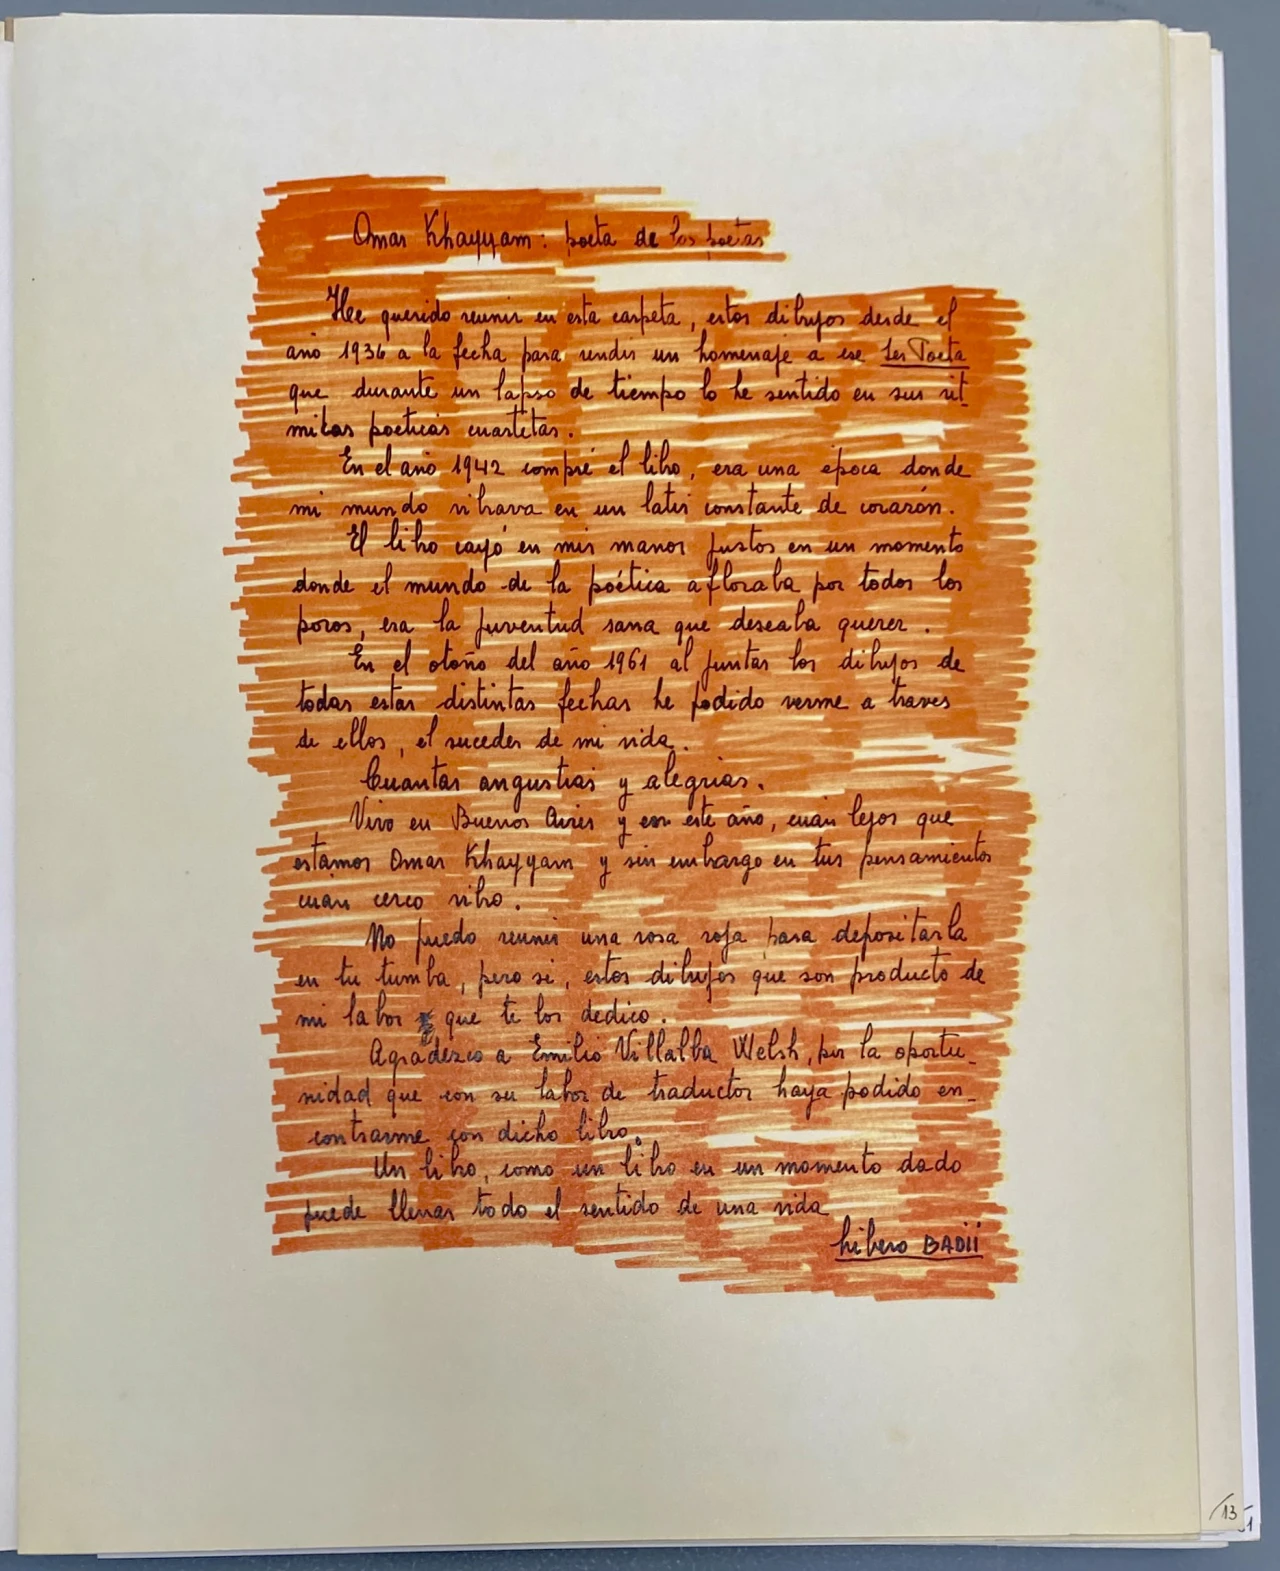 Omar Khayyam: poeta de los poetas
He querido reunir en esta carpeta, estos dibujos desde el
año 1936 a la fecha para rendir un homenaje a ese Ser Poeta
que durante un lapso de tiempo lo he sentido en sus rit_
micas poeticas cuartetas.
En el año 1942 compré el libro, era una época donde
mi mundo vibrava en un latir constante de corazón.
El libro cayó en mis manos justos en un momento
donde el mundo de la poética afloraba por todos los
poros, era la juventud sana que deseaba querer.
En el otoño del año 1961 al juntar los dibujos de
todas estas distintas fechas he podido verme a traves
de ellos, el suceder de mi vida.
Cuantas angustias y alegrias.
Vivo en Buenos Aires y en este año, cuan lejos que
estamos Omar Khayyam y sin embargo en tus pensamientos
cuan cerca vibro.
No puedo reunir una rosa roja para depositarla
en tu tumba, pero si, estos dibujos que son producto de
mi labor que te los dedico.
Agradezco a Emilio Villalba Welsh, por la oportu_
nidad que con su labor de traductor haya podido en_
contrarme con dicho libro.
Un libro, como un libro en un momento dado
puede llenar todo el sentido de una vida
Libero BADII
13